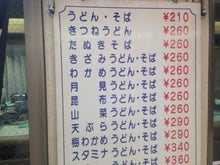 うどん・そば ¥210
きつねうどん ¥260
たぬきそば ¥260
きざみうどん・そば ¥260
わかめうどん・そば ¥260
月見うどん・そば ¥260
昆布うどん・そば ¥260
山菜うどん・そば ¥290
天ぷらうどん・そば ¥290
梅わかめうどん・そば ¥290
スタミナうどん・そば ¥340
うどん・そば ¥360